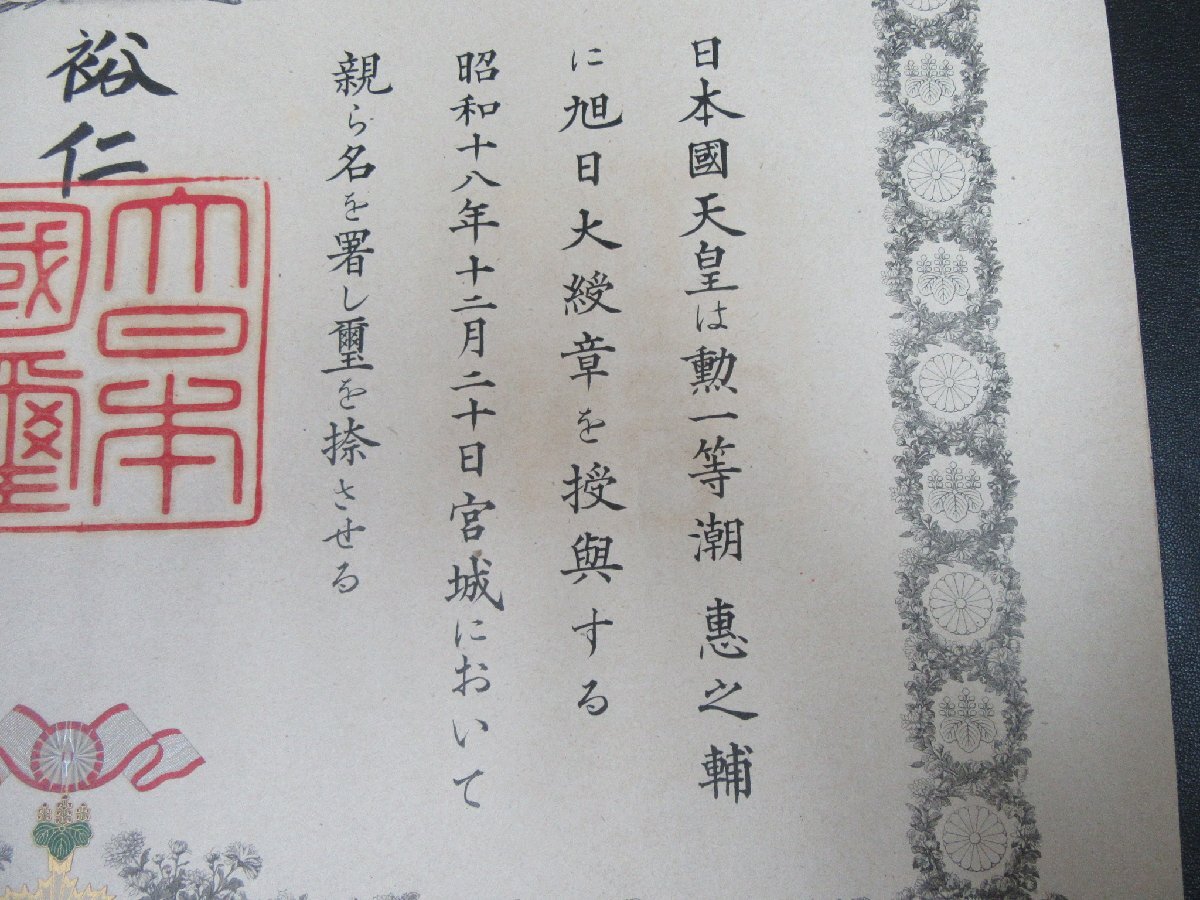 日本國天皇は勲一等潮 惠之輔
に旭日大綬章を授與する
昭和十八年十二月二十日宮城において
親ら名を署し璽を捺させる
裕仁
大日本
國璽